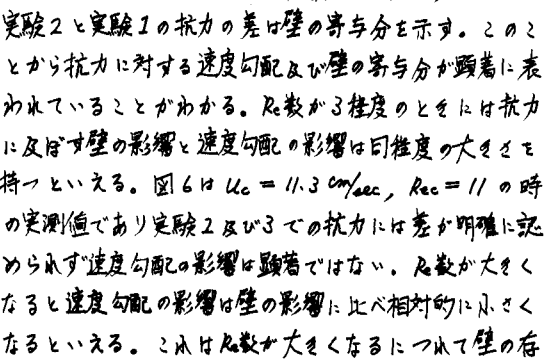 実験2と実験1の抗力の差は壁の寄与分を示す。このこ
とから抗力に対する速度勾配及び壁の寄与分が顕著に表
われていることがわかる。Re数が3程度のときには抗力
に及ぼす壁の影響と速度勾配の影響は同程度の大きさを
持つといえる。図6はUc = 11.3 cm/sec, Rec = 11 の時
の実測値であり実験2及び3での抗力には差が明確に認
められず速度勾配の影響は顕著ではない。Re数が大きく
なると速度勾配の影響は壁の影響に比べ相対的に小さく
なるといえる。これはRe数が大きくなるにつれて壁の存